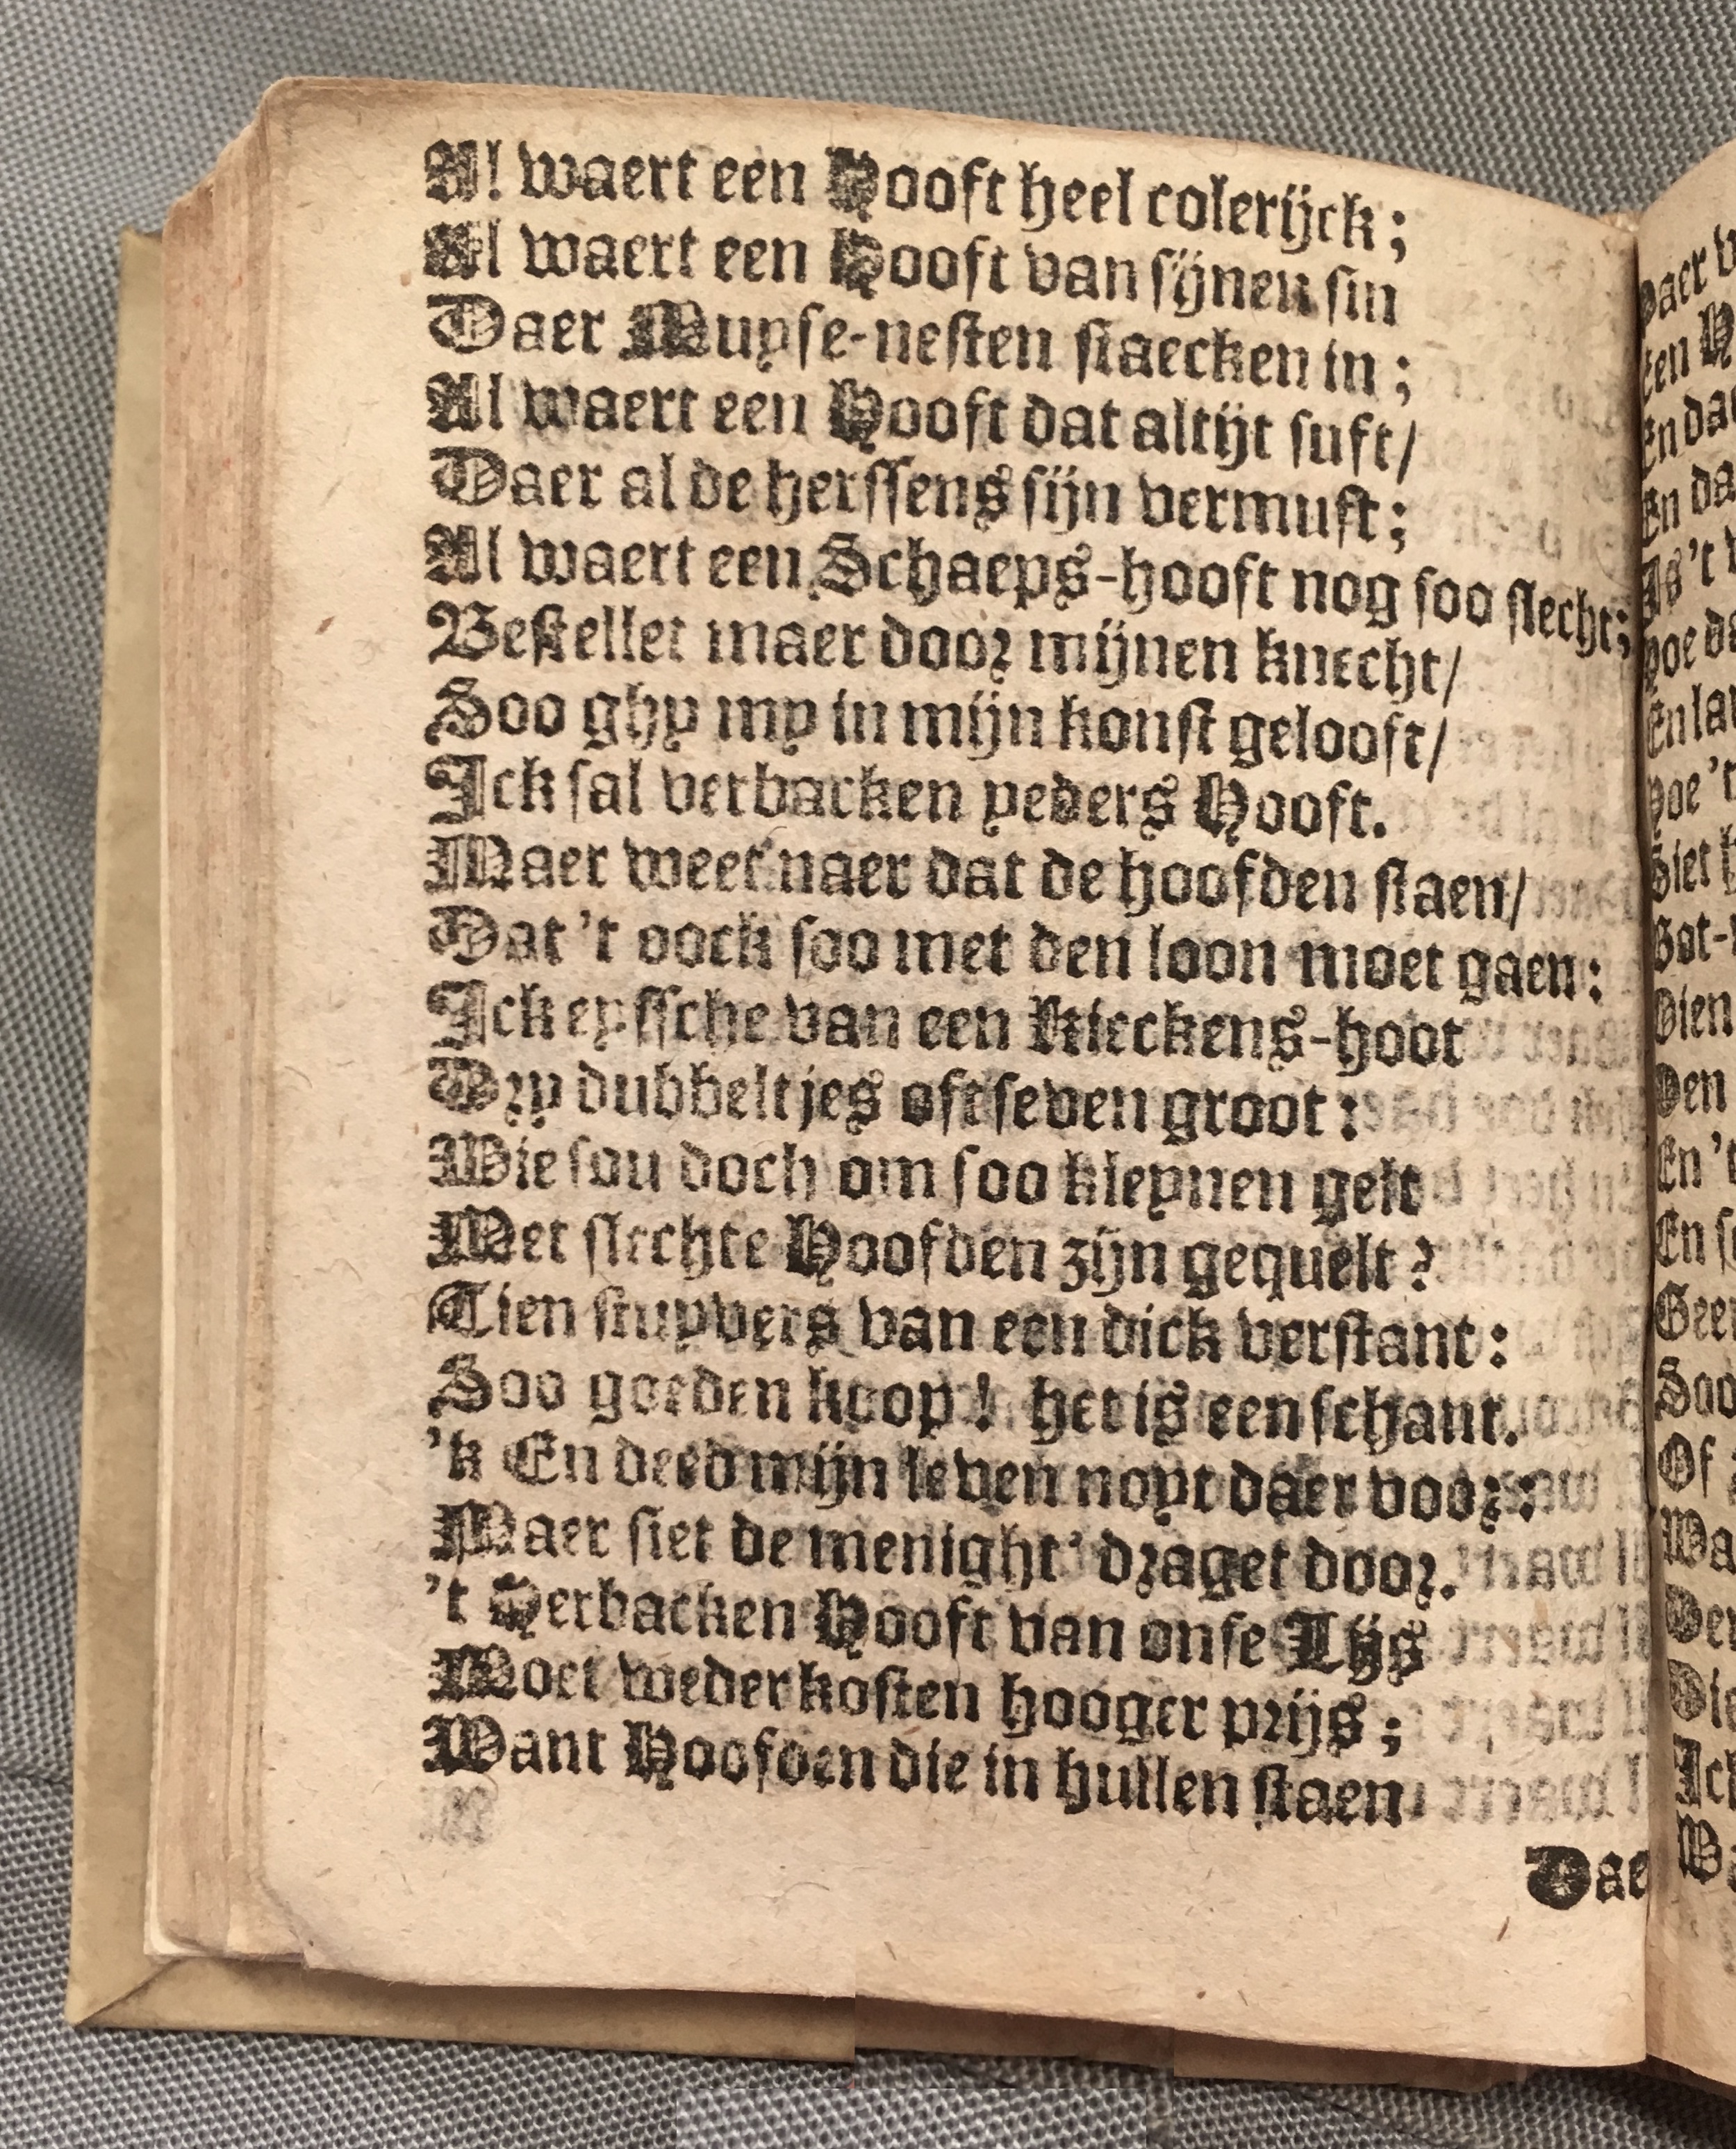 Al waert een Hooft heel colerijck;
Al waert een Hooft van sijnen sin
Daer Muyse-nesten staecken in;
Al waert een Hooft dat altijt suft/
Daer al de herssens sijn vermuft;
Al waert een Schaeps-hooft nog soo slecht;
Bestellet maer door mijnen knecht/
Soo ghy my in mijn konst gelooft/
Ick sal verbacken yeders Hooft.
Maer weet naer dat de hoofden staen/
Dat 't oock soo met den loon moet gaen:
Ick eyssche van een Kieckens-hoot
Dry dubbeltjes oft seven groot:
Wie sou doch om soo kleynen gelt
Met slechte Hoofden zijn gequelt?
Tien stuyvers van een dick verstant:
Soo goeden koop! het is een schant.
'k En deed mijn leven noyt daer voor:
Maer siet de menight' draget door.
't Herbacken Hooft van onse Lijs
Moet weder kosten hooger prijs;
Want Hoofden die in hullen staen
Dae
Daer
Een H
En dat
En da
Is 't
hoe da
En la
hoe 't
Siet
Got-
Dien
Den
En 't
En s
Geen
Soo
Of
Wa
Den
Die
Ick